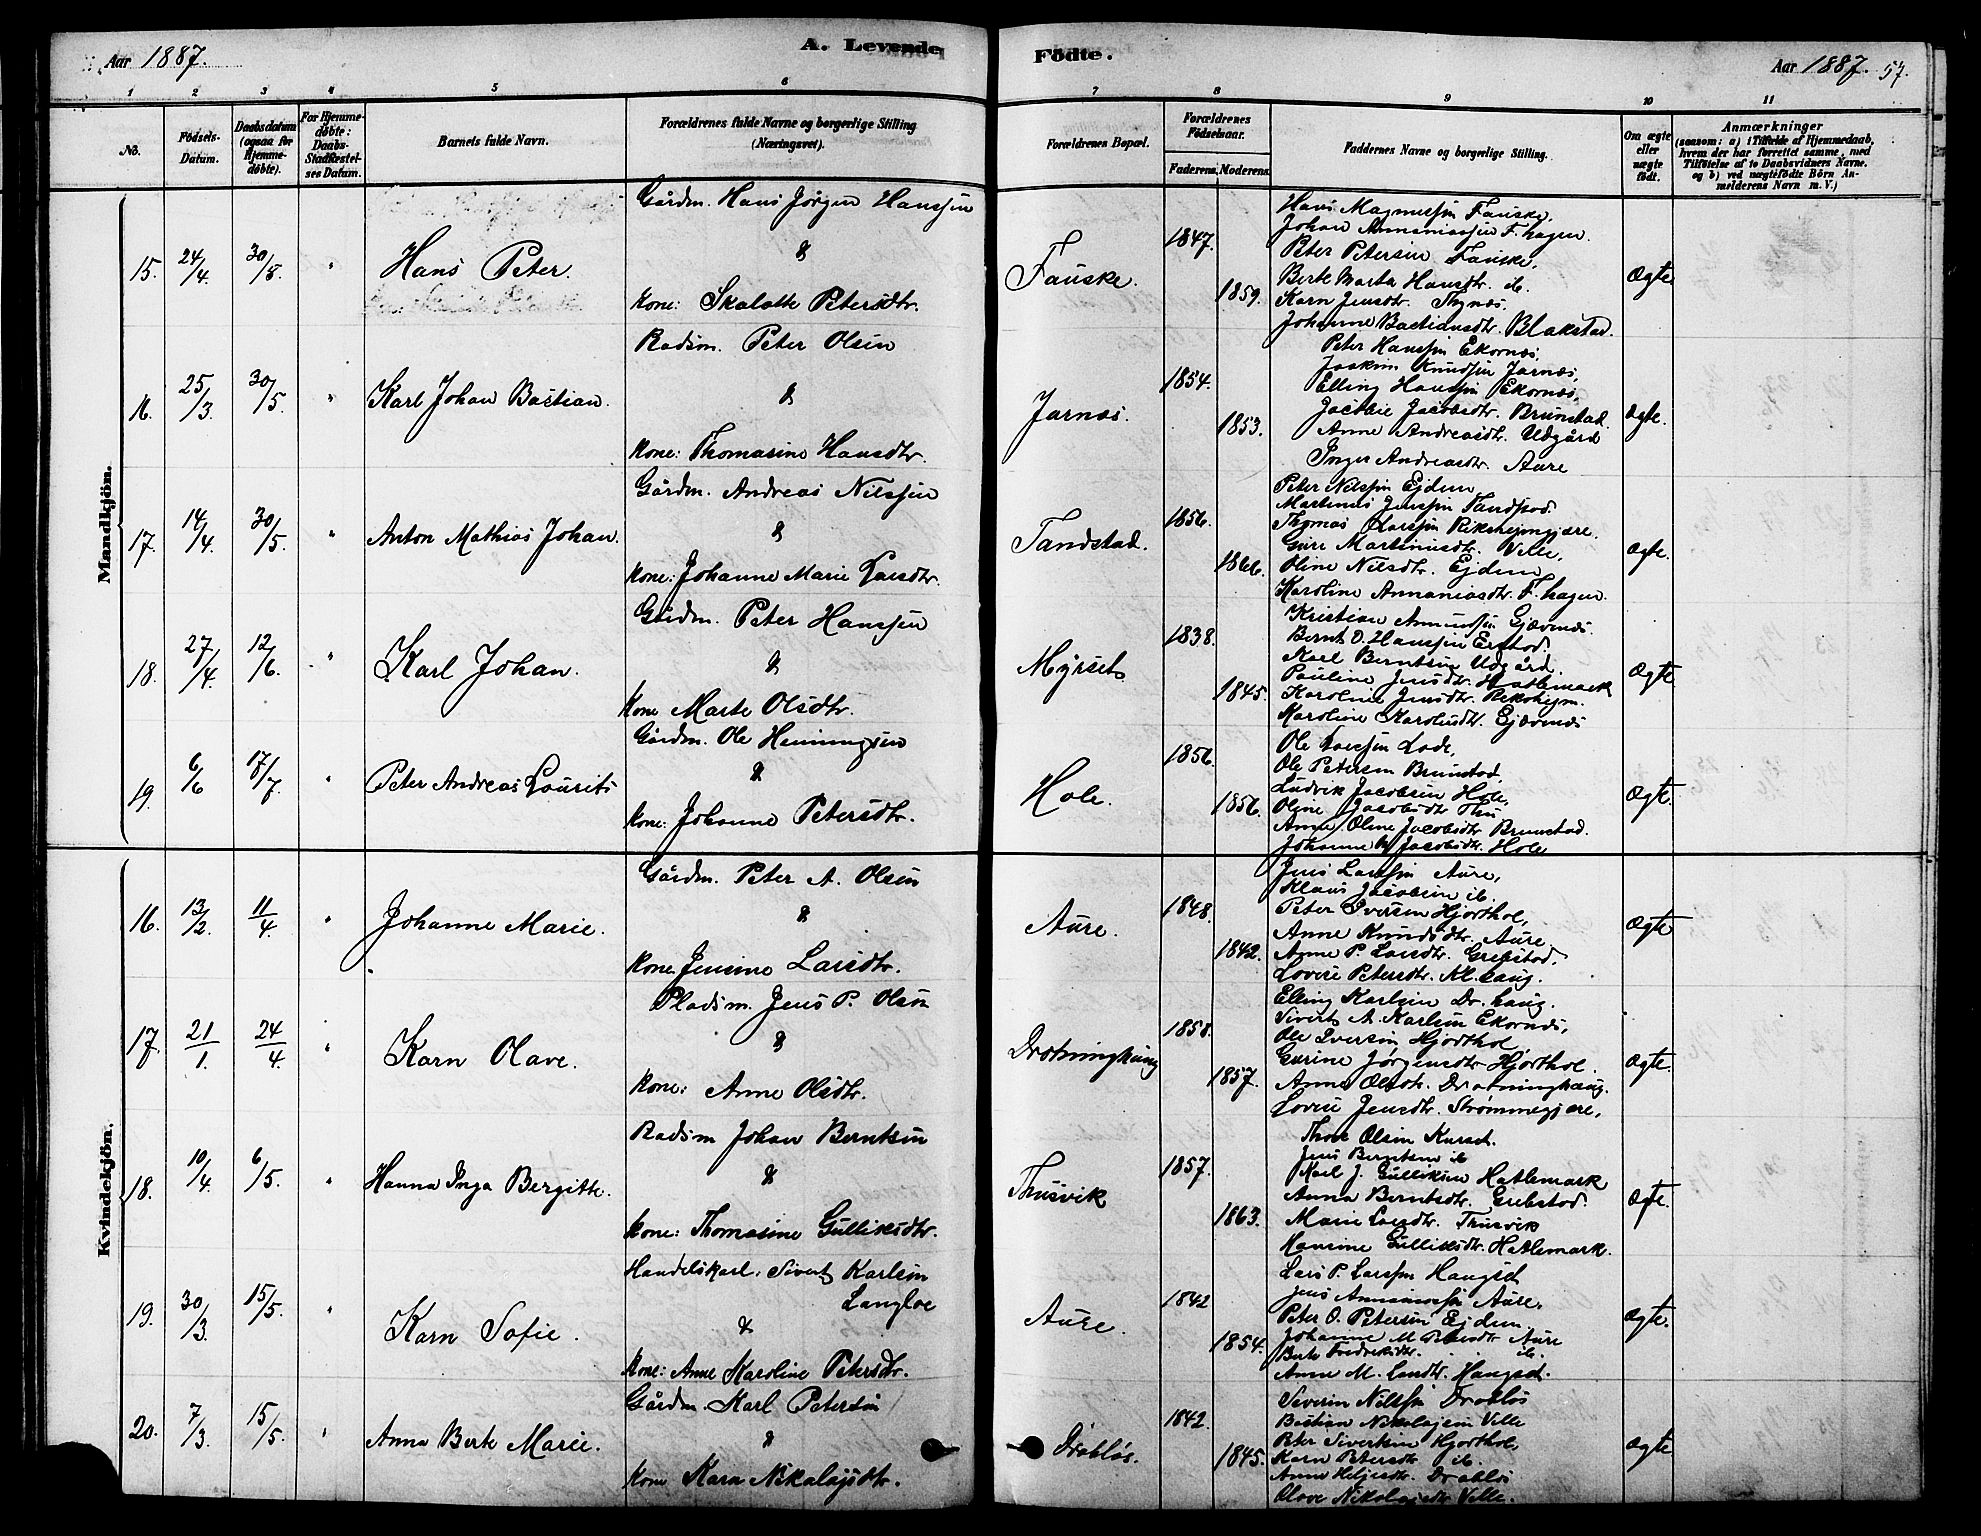 Aar 1887.
A. Levende
Födte.
Aar 1887. 57.
1 2 3 4 5 6 7 8 9 10 11
No.
Födsels-Datum.
Daabsdatum (ogsaa for Hjemmedöbte).
For Hjemmedöbte: Daabs-Stadfæstelses Datum.
Barnets fulde Navn.
Forældrenes fulde Navne og borgerlige Stilling (Næringsvei).
Forældrenes Bopæl.
Forældrenes Födselsaar.
Faderens. Moderens.
Faddernes Navne og borgerlige Stilling.
Om ægte eller uægte födt.
Anmærkninger
(saasom: a) i Tilfælde af Hjemmedaab,
hvem der har forrettet samme, med
Tilföielse af to Daabsvidners Navne.
og b) ved uægtefödte Börn Anmelderens Navn m. V.)
Mandkjön.
15. 24/4. 30/8. " Hans Peter.
Gårdm. Hans Jörgen Hanssen
&
kone: Skalotte Petersdtr.
Fauske. 1847. 1859.
Hans Magnussen Fauske.
Johan Annaniassen F. hagen.
Peter Petersen Fauske.
Berte Marta Hansdtr. ib.
Karn Jensdtr. Thynæs.
Johanne Bastiansdtr. Blakstad.
Ægte.
16. 25/3. 30/5. " Karl Johan Bastian.
Radsm. Peter Olsen
&
kone: Thomasine Hansdtr.
Jarnæs. 1854. 1853.
Peter Hanssen Ekornæs,
Joakim Knudsen Jarnæs,
Elling Hanssen Ekornæs,
Jacobie Jacobsdtr. Brunstad.
Anne Andreasdtr. Udgård
Inger Andreasdtr. Aure
Ægte.
17. 14/4. 30/5. " Anton Mathias Johan.
Gårdm. Andreas Nilssen
&
kone: Johanne Marie Larsdtr.
Tandstad. 1856. 1866.
Peter Nilssen Ejdem
Martinus Jenssen Tandstad.
Thomas Larssen Rikshejmgjære.
Guri Martinusdtr. Velle,
Oline Nilsdtr. Ejdem
Karoline Annaniasdtr. F. hagen.
Ægte.
18. 27/4. 12/6. " Karl Johan.
Gårdm. Peter Hanssen
&
kone Marte Olsdtr.
Myrset. 1838. 1845.
Kristian Gjævenæs.
Bernt O. Hanssen Erstad.
Karl Berntsen Udgård
Pauline Jensdtr. Hatlemark
Karoline Jensdtr. Rikshejm.
Karoline Karolusdtr. Gjævenæs
Ægte
19. 6/6 17/7. " Peter Andreas Lourits
Gårdm. Ole Henningsen
&
kone: Johanne Petersdtr.
Hole. 1856. 1856.
Ole Larssen Lade,
Ole Petersen Brunstad,
Ludvik Jacobsen Hole,
Oline Jacobsdtr Thu
Anne Oline Jacobsdtr Brunstad.
Johanne Jacobsdtr. Hole
Ægte.
Kvindekjön.
16. 13/2. 11/4. " Johanne Marie.
Gårdm. Peter A. Olsen
&
kone Jensine Larsdtr.
Aure. 1848. 1842.
Jens Larssen Aure,
Klaus Jacobsen ib.
Peter Iversen Hjorthol,
Anne Knudsdtr. Aure
Anne P. Larsdtr. Grebstad.
Lovise Petersdtr.
Ægte
17. 21/1. 24/4. " Karn Olave.
Pladsm. Jens P. Olsen
&
kone: Anne Olsdtr.
Drotninghaug 1858. 1857.
Elling Karlsen Dr. haug.
Siverts A. Karlsen Ekornæs,
Ole Iversen Hjorthol
Gurine Jörgensdtr Hjorthol.
Anne Olsdtr. Drotninghaug.
Lovise Jensdtr. Strömmegjære,
Ægte.
18. 10/4. 6/5. " Hanna Inga Bergitte.
Radsm Johan Berntsen
&
kone: Thomasine Gulliksdtr.
Thusvik 1857. 1863.
Thore Olsen Kurset.
Jens Berntsen ib
Karl J. Gulliksen Hatlemark
Anna Berntsdtr. Grebstad.
Marie Larsdtr. Thusvik
Hansine Gulliksdtr. Hatlemark.
Ægte.
19. 30/3. 15/5. " Karn Sofie.
Handelskarl. Siverts Karlsen
Langloe
&
kone: Anne Karoline Petersdtr.
Aure. 1842 1854.
Lars P. Larssen Haugset
Jens Annaniassen Aure,
Peter O. Petersen Ejdem
Johanne M Petersdtr Aure
Berte Fredriksdtr. ib.
Anne M. Larsdtr. Haugset.
Ægte.
20. 7/3. 15/5. " Anna Berte Marie.
Gårdm. Karl Petersen
&
kone Karn Nikolajsdtr.
Drablös. 1842. 1845.
Severin Nilssen Drabløs
Bastian Nikolajsen Velle
Peter Sivertsen Hjorthol,
Karn Petersdtr ib.
Anne Heljesdtr. Drabløs
Olave Nikolajsdtr Velle.
Ægte